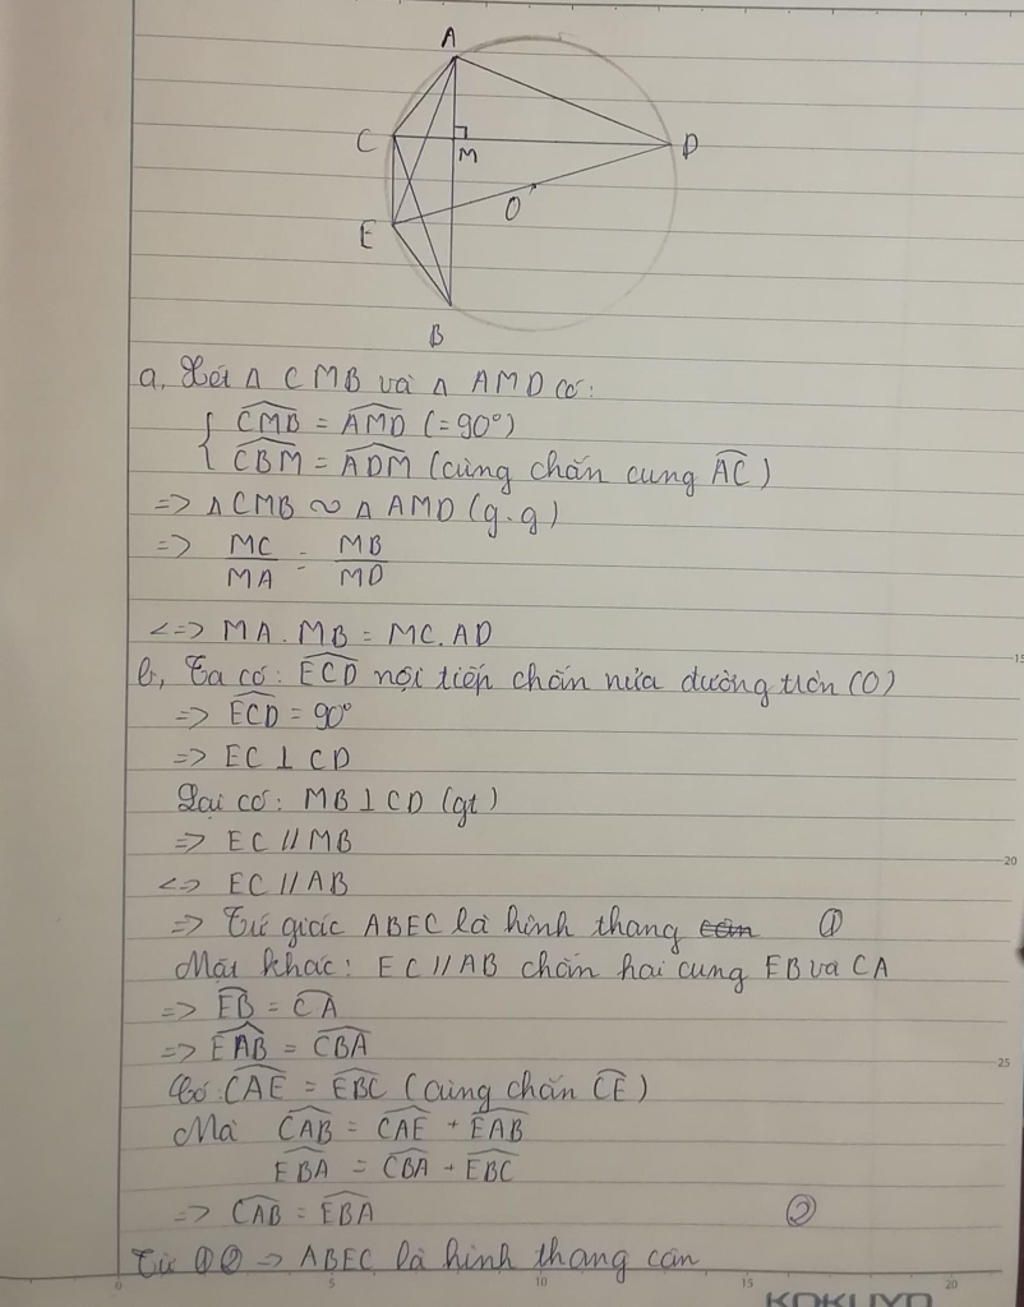 A
C
M
D
O
E
B
a, Xét Δ CMB và Δ AMD có:
{ \widehat{CMB} = \widehat{AMD} (= 90°)
\widehat{CBM} = \widehat{ADM} (cùng chắn cung \widehat{AC})
=> Δ CMB ∽ Δ AMD (g.g)
=> MC/MA = MB/MD
<=> MA . MB = MC. AD
b, Ta có: \widehat{ECD} nội tiếp chắn nửa đường tròn (O)
=> \widehat{ECD} = 90°
=> EC ⊥ CD
Lại có: MB ⊥ CD (gt)
=> EC // MB
<=> EC // AB
=> Tứ giác ABEC là hình thang cân ①
Mặt khác: EC // AB chắn hai cung EB và CA
=> \widehat{EB} = \widehat{CA}
=> \widehat{EAB} = \widehat{CBA}
Có: \widehat{CAE} = \widehat{EBC} (cùng chắn \widehat{CE})
Mà \widehat{CAB} = \widehat{CAE} + \widehat{EAB}
\widehat{EBA} = \widehat{CBA} + \widehat{EBC}
=> \widehat{CAB} = \widehat{EBA} ②
Từ ①② => ABEC là hình thang cân
15
20
25
0 5 10 15 20
KOKUYO